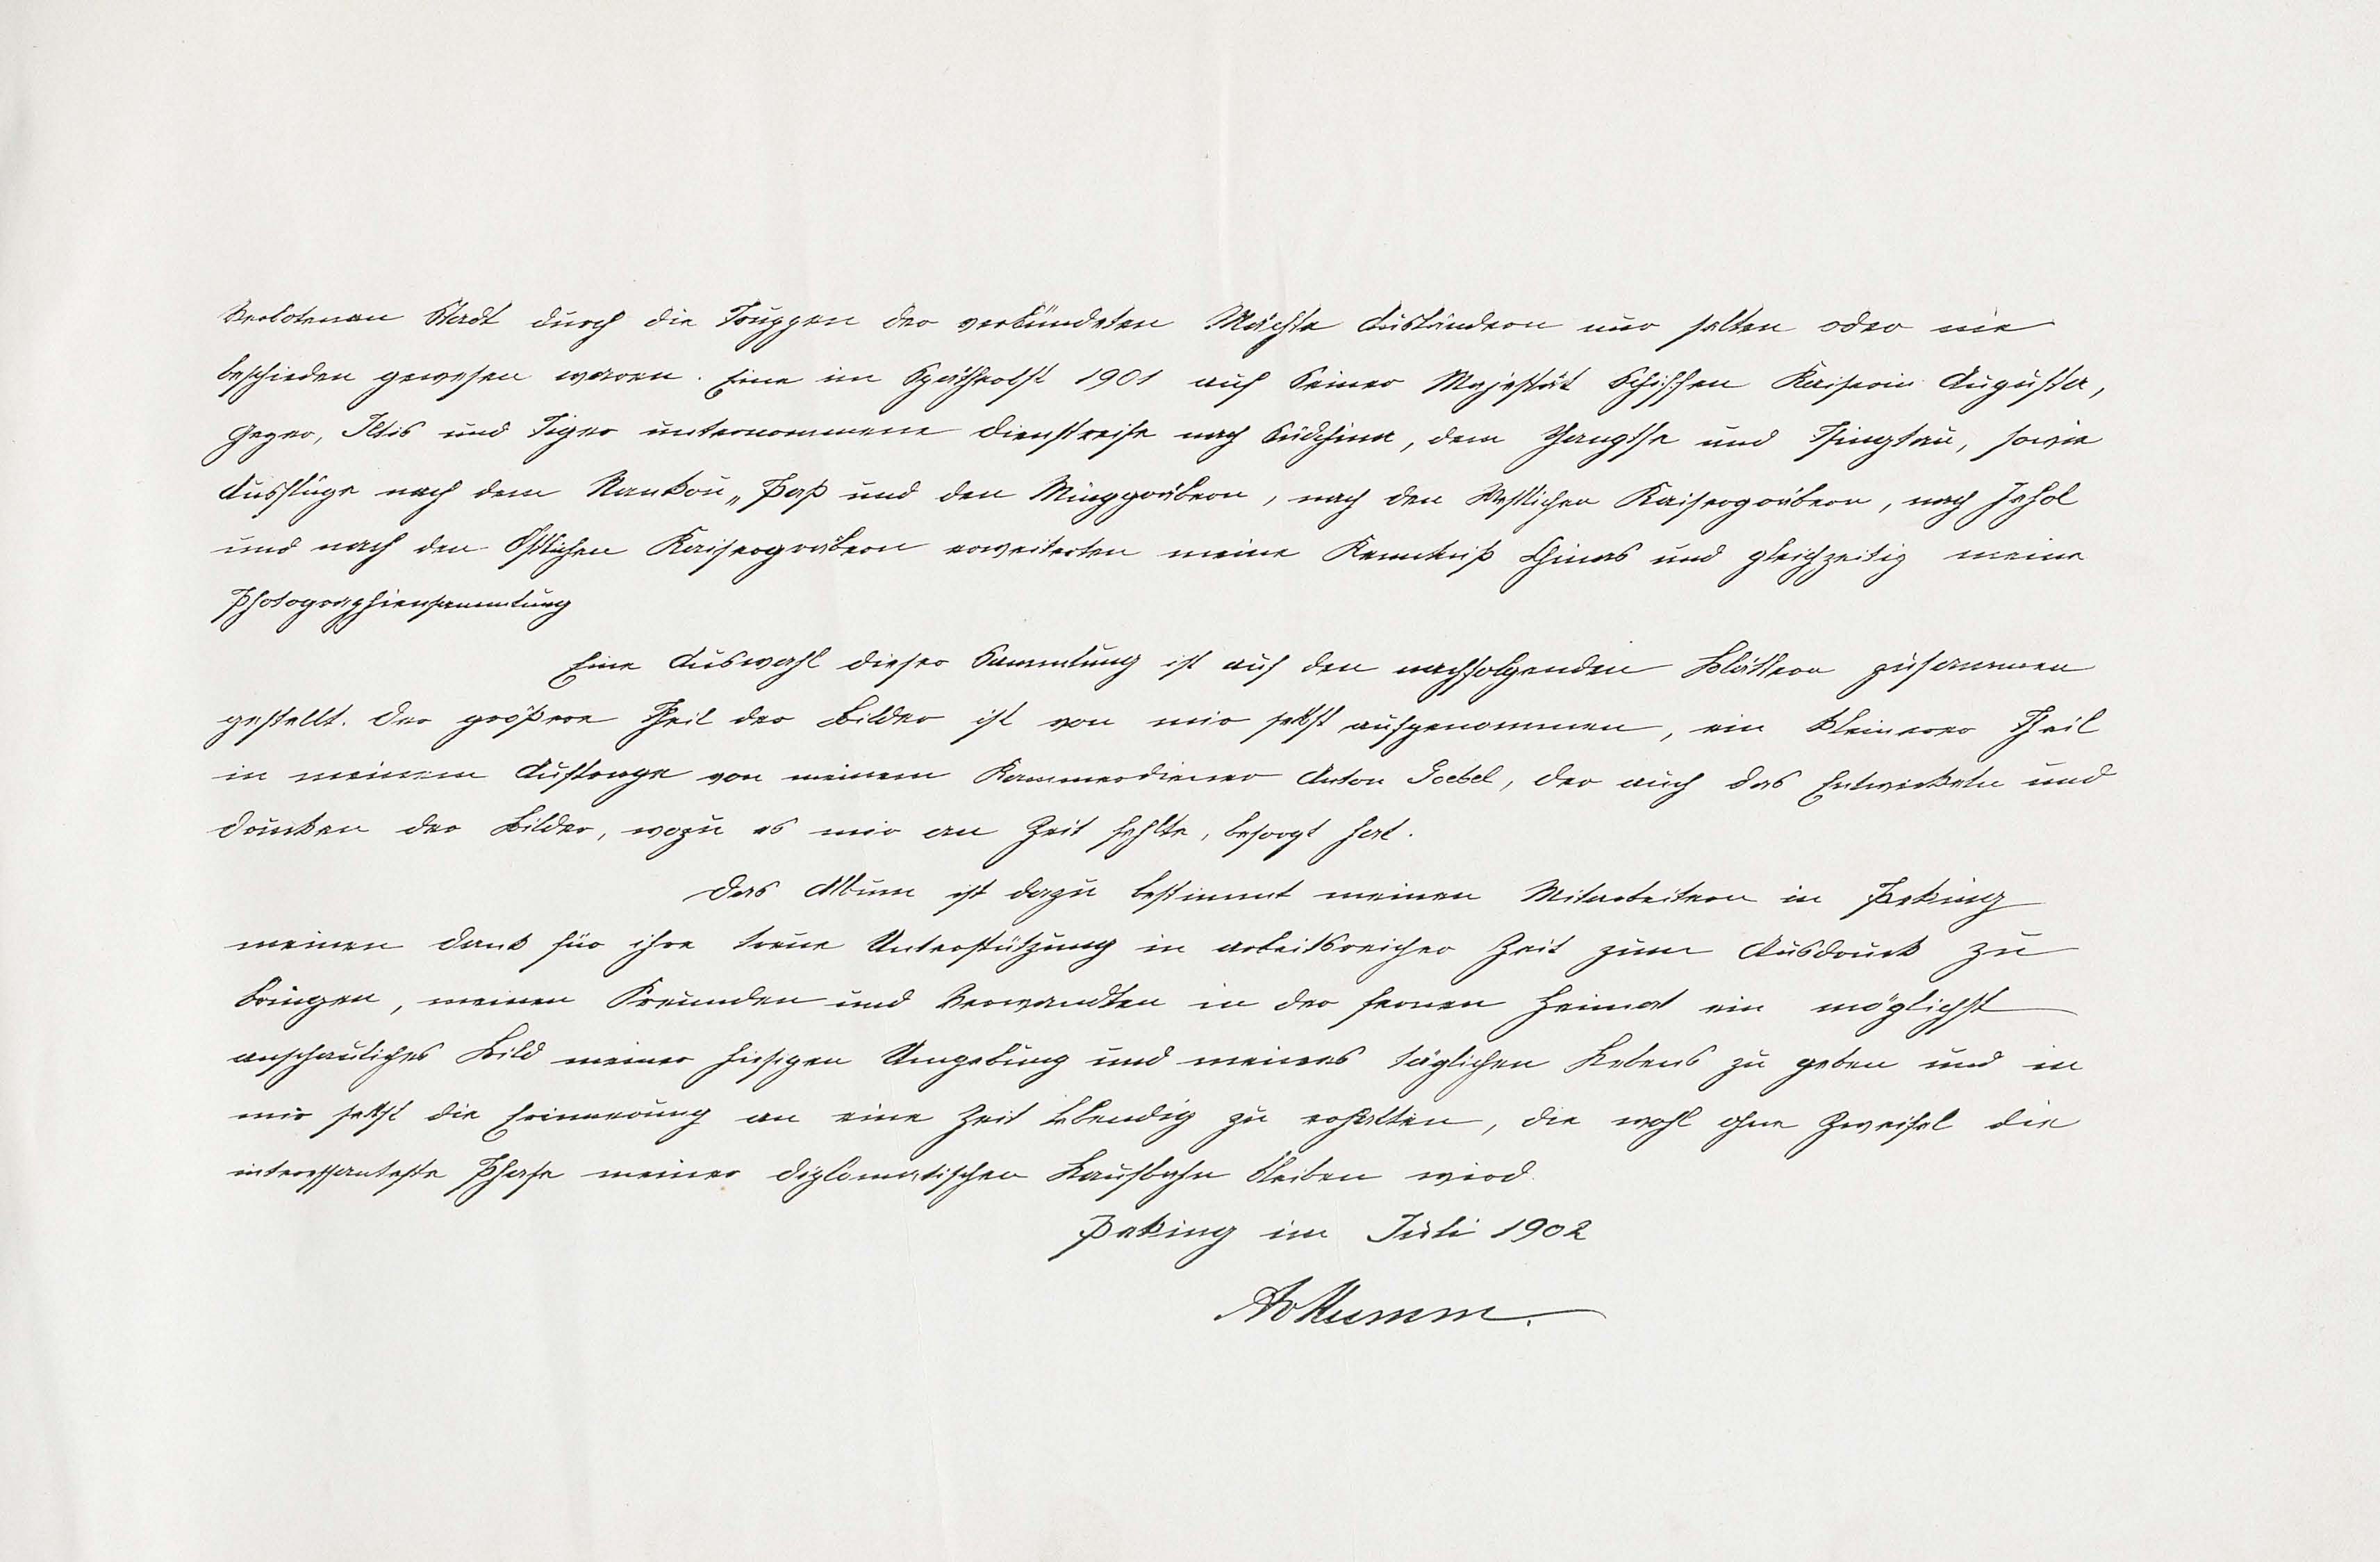 Verbotenen Stadt durch die Truppen der verbündeten Mächte Ausländern nur selten oder nie
beschieden gewesen waren. Eine im Spätherbst 1901 auf Seiner Majestät Schiffen Kaiserin Augusta,
Geyer, Iltis und Tiger unternommene Dienstreise nach Südchina, dem Yangtse und Tsingtau, sowie
Ausflüge nach dem Nankou-Paß und den Minggräbern, nach den Westlichen Kaisergräbern, nach Jehol
und nach den Östlichen Kaisergräbern erweiterten meine Kenntniß Chinas und gleichzeitig meine
Photographiensammlung
Eine Auswahl dieser Sammlung ist auf den nachfolgenden Blättern zusammen
gestellt. Der größere Theil der Bilder ist von mir selbst aufgenommen, ein kleinerer Theil
in meinem Auftrage von meinem Kammerdiener Anton Goebel, der auch das Entwickeln und
Drucken der Bilder, wozu es mir an Zeit fehlte, besorgt hat.
Das Album ist dazu bestimmt meinen Mitarbeitern in Peking
meinen Dank für ihre treue Unterstützung in arbeitsreicher Zeit zum Ausdruck zu
bringen, meinen Freunden und Verwandten in der fernen Heimat ein möglichst
anschauliches Bild meiner hiesigen Umgebung und meines täglichen Lebens zu geben und in
mir selbst die Erinnerung an eine Zeit lebendig zu erhalten, die wohl ohne Zweifel die
interessanteste Phase meiner diplomatischen Laufbahn bleiben wird.
Peking im Juli 1902
AvMumm.